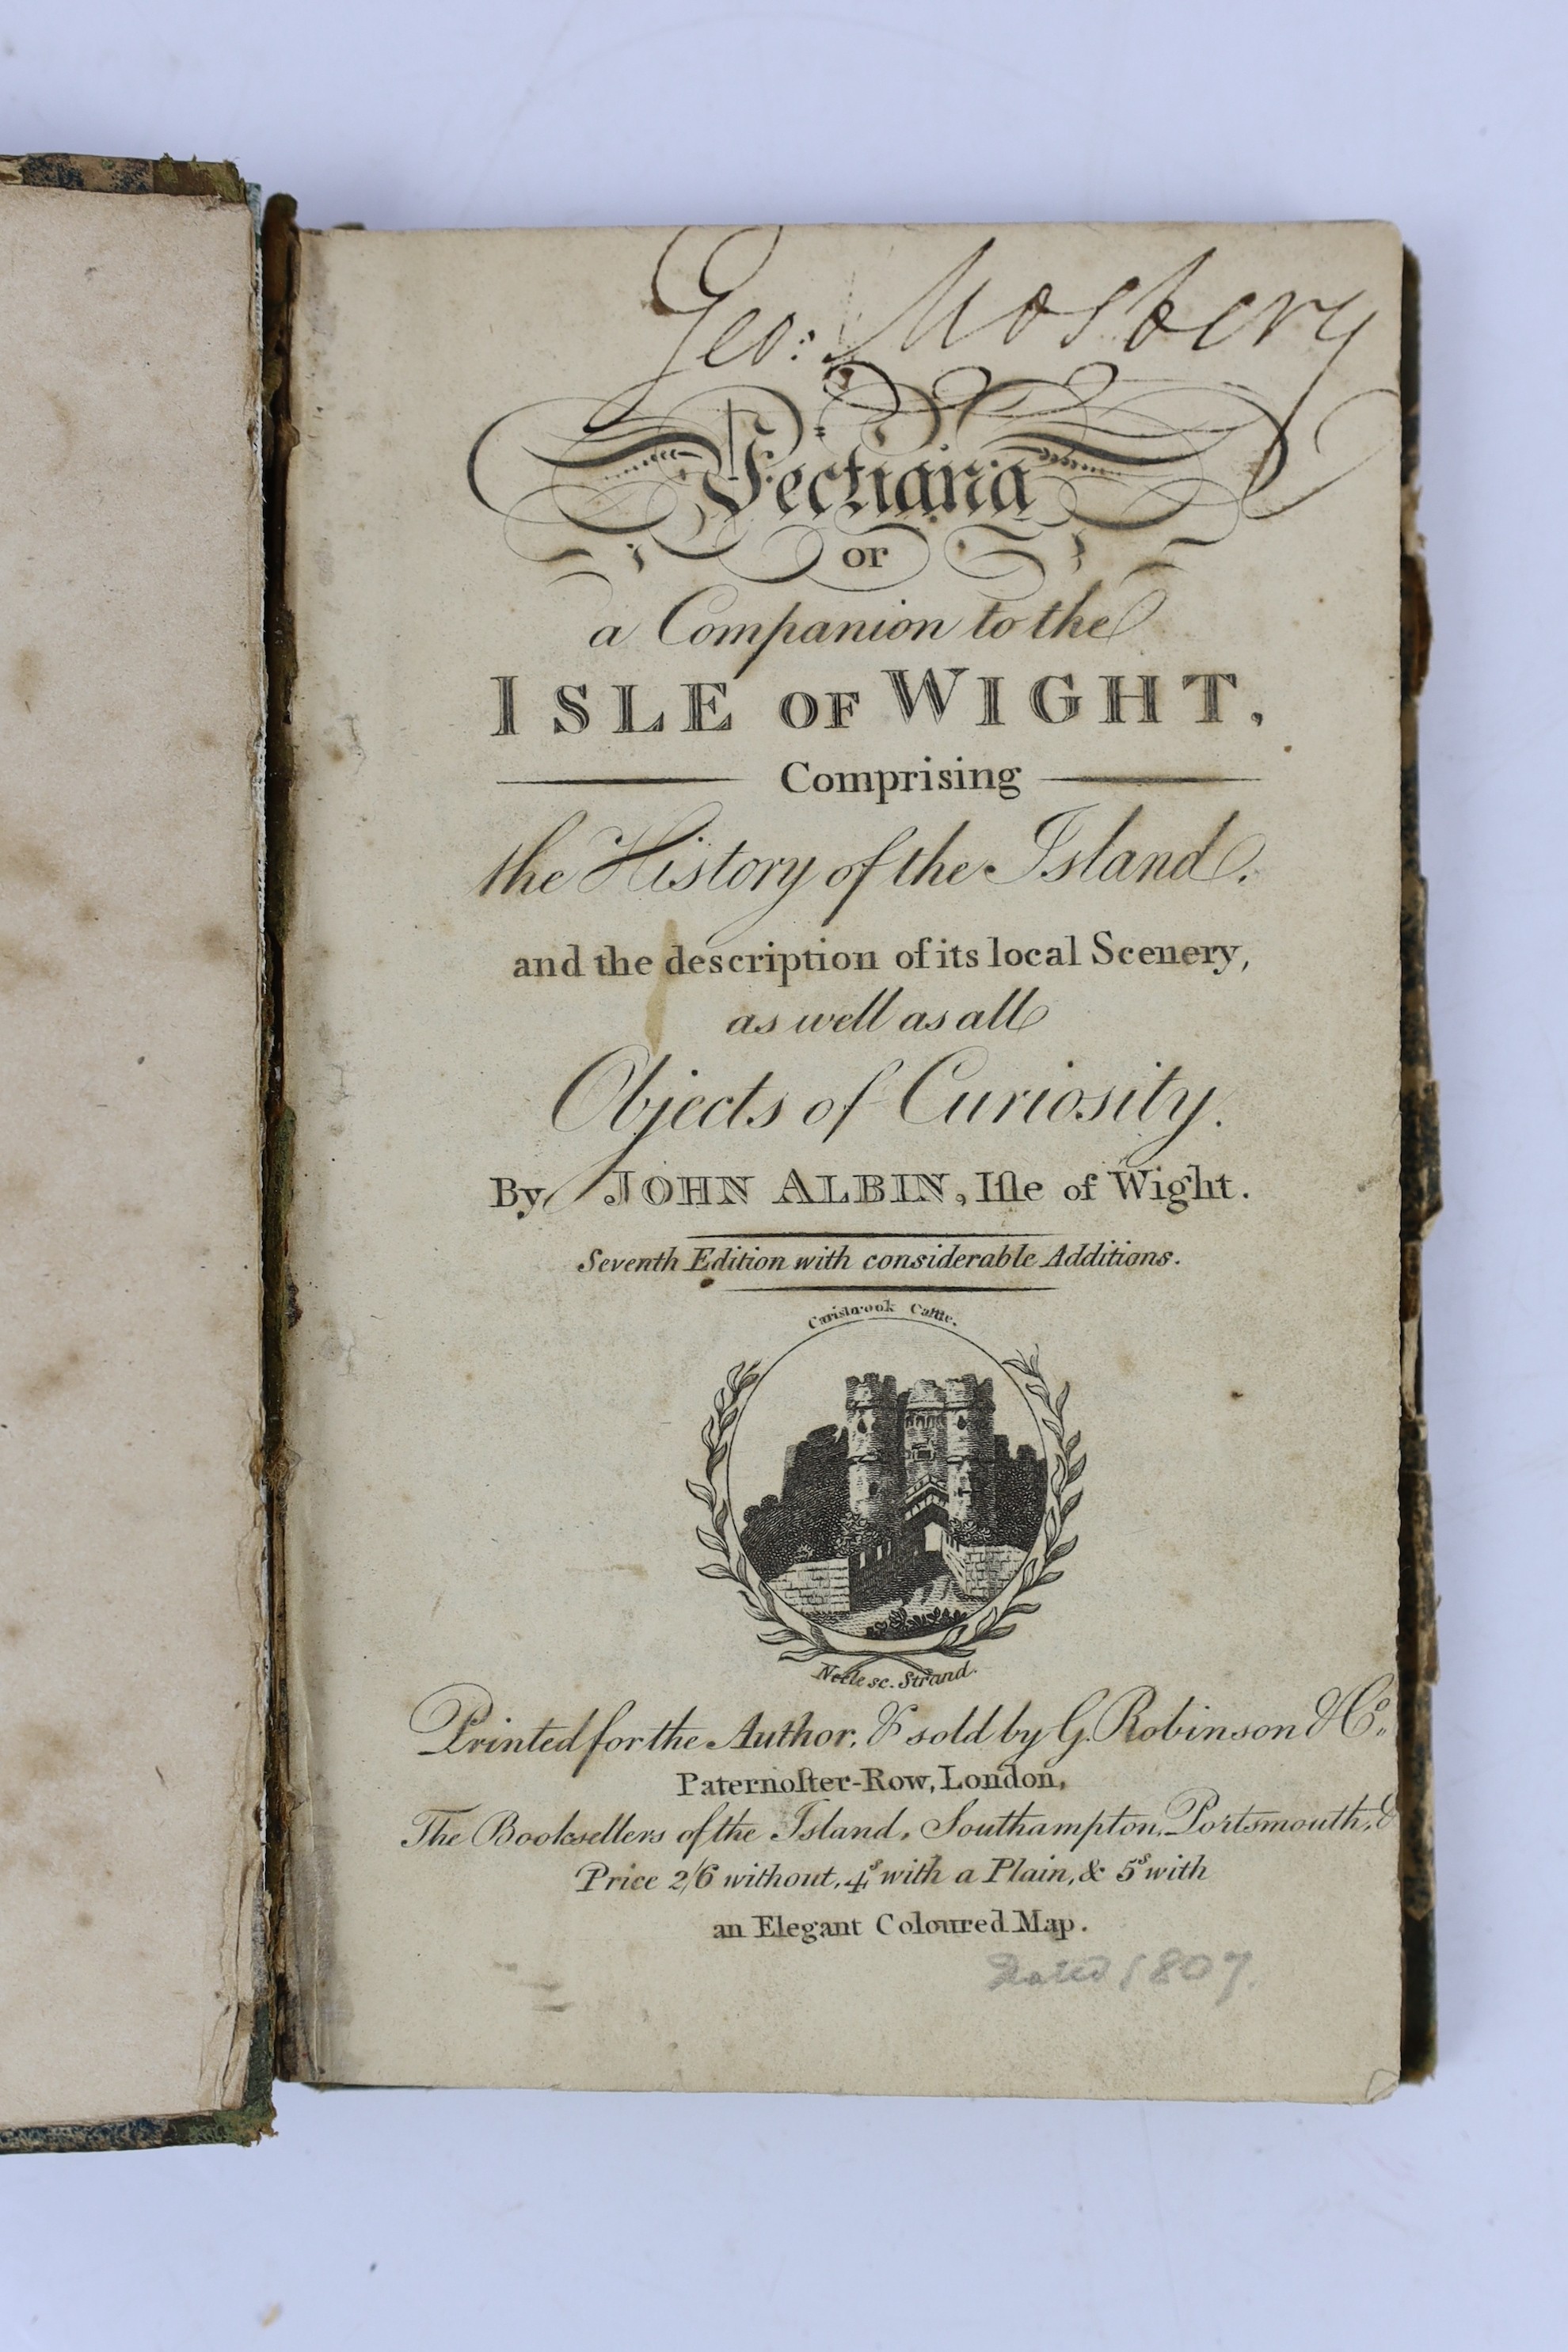 Geo: Mosbery
Vectiana
or
a Companion to the
ISLE OF WIGHT,
Comprising
the History of the Island.
and the description of its local Scenery,
as well as all
Objects of Curiosity.
By JOHN ALBIN, Iſle of Wight.
Seventh Edition with considerable Additions.
Carisbrook Caſtle.
Neele sc. Strand.
Printed for the Author, & sold by G. Robinson & Co.,
Paternoſter-Row, London,
The Booksellers of the Island, Southampton, Portsmouth, &
Price 2/6 without, 4s with a Plain, & 5s with
an Elegant Coloured Map.
1807.